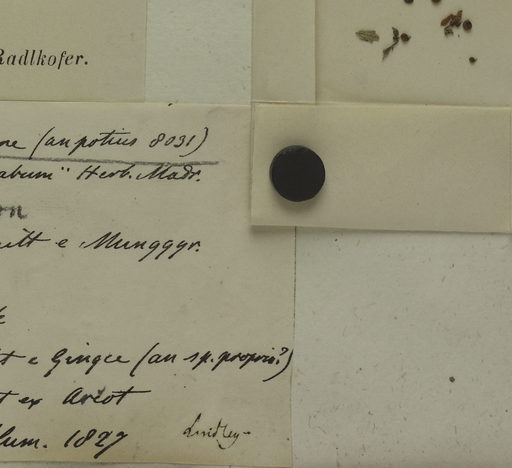 Radlkofer.
(an potius 8031)
" Herb. Madr.
e Munggyr.
e Gingee (an sp. propria?)
ex Arcot
1827
Lindley